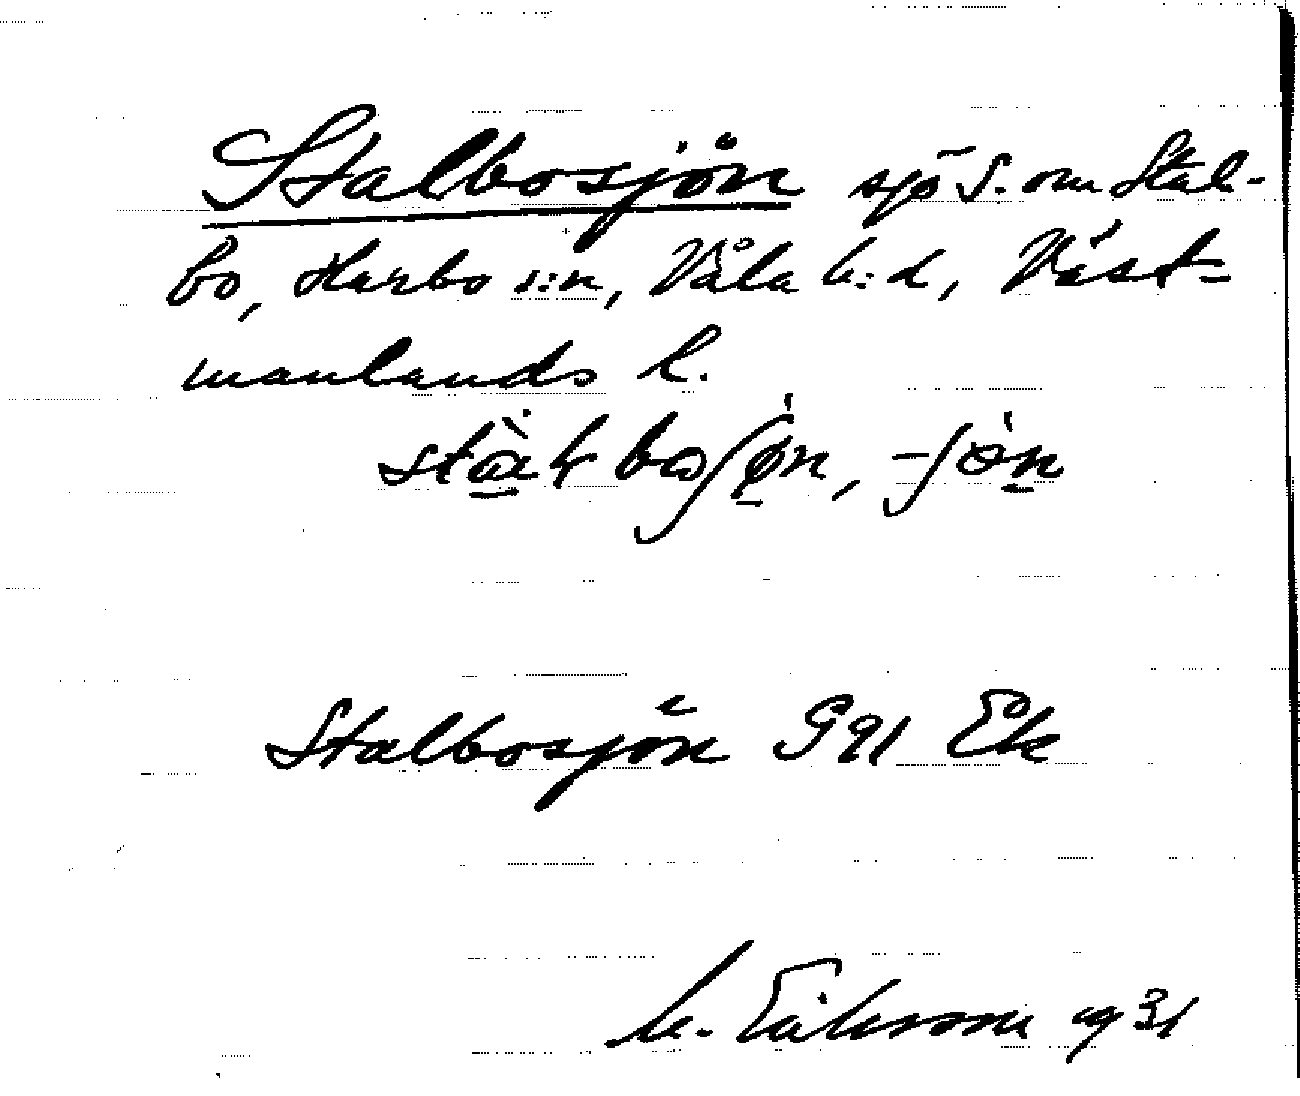 Stalbosjön sjö S. om Stal-
bo, Harbo s:n, Våla h:d, Väst-
manlands l.
Stalbosjön G91 Ek
M. Eriksson 1931